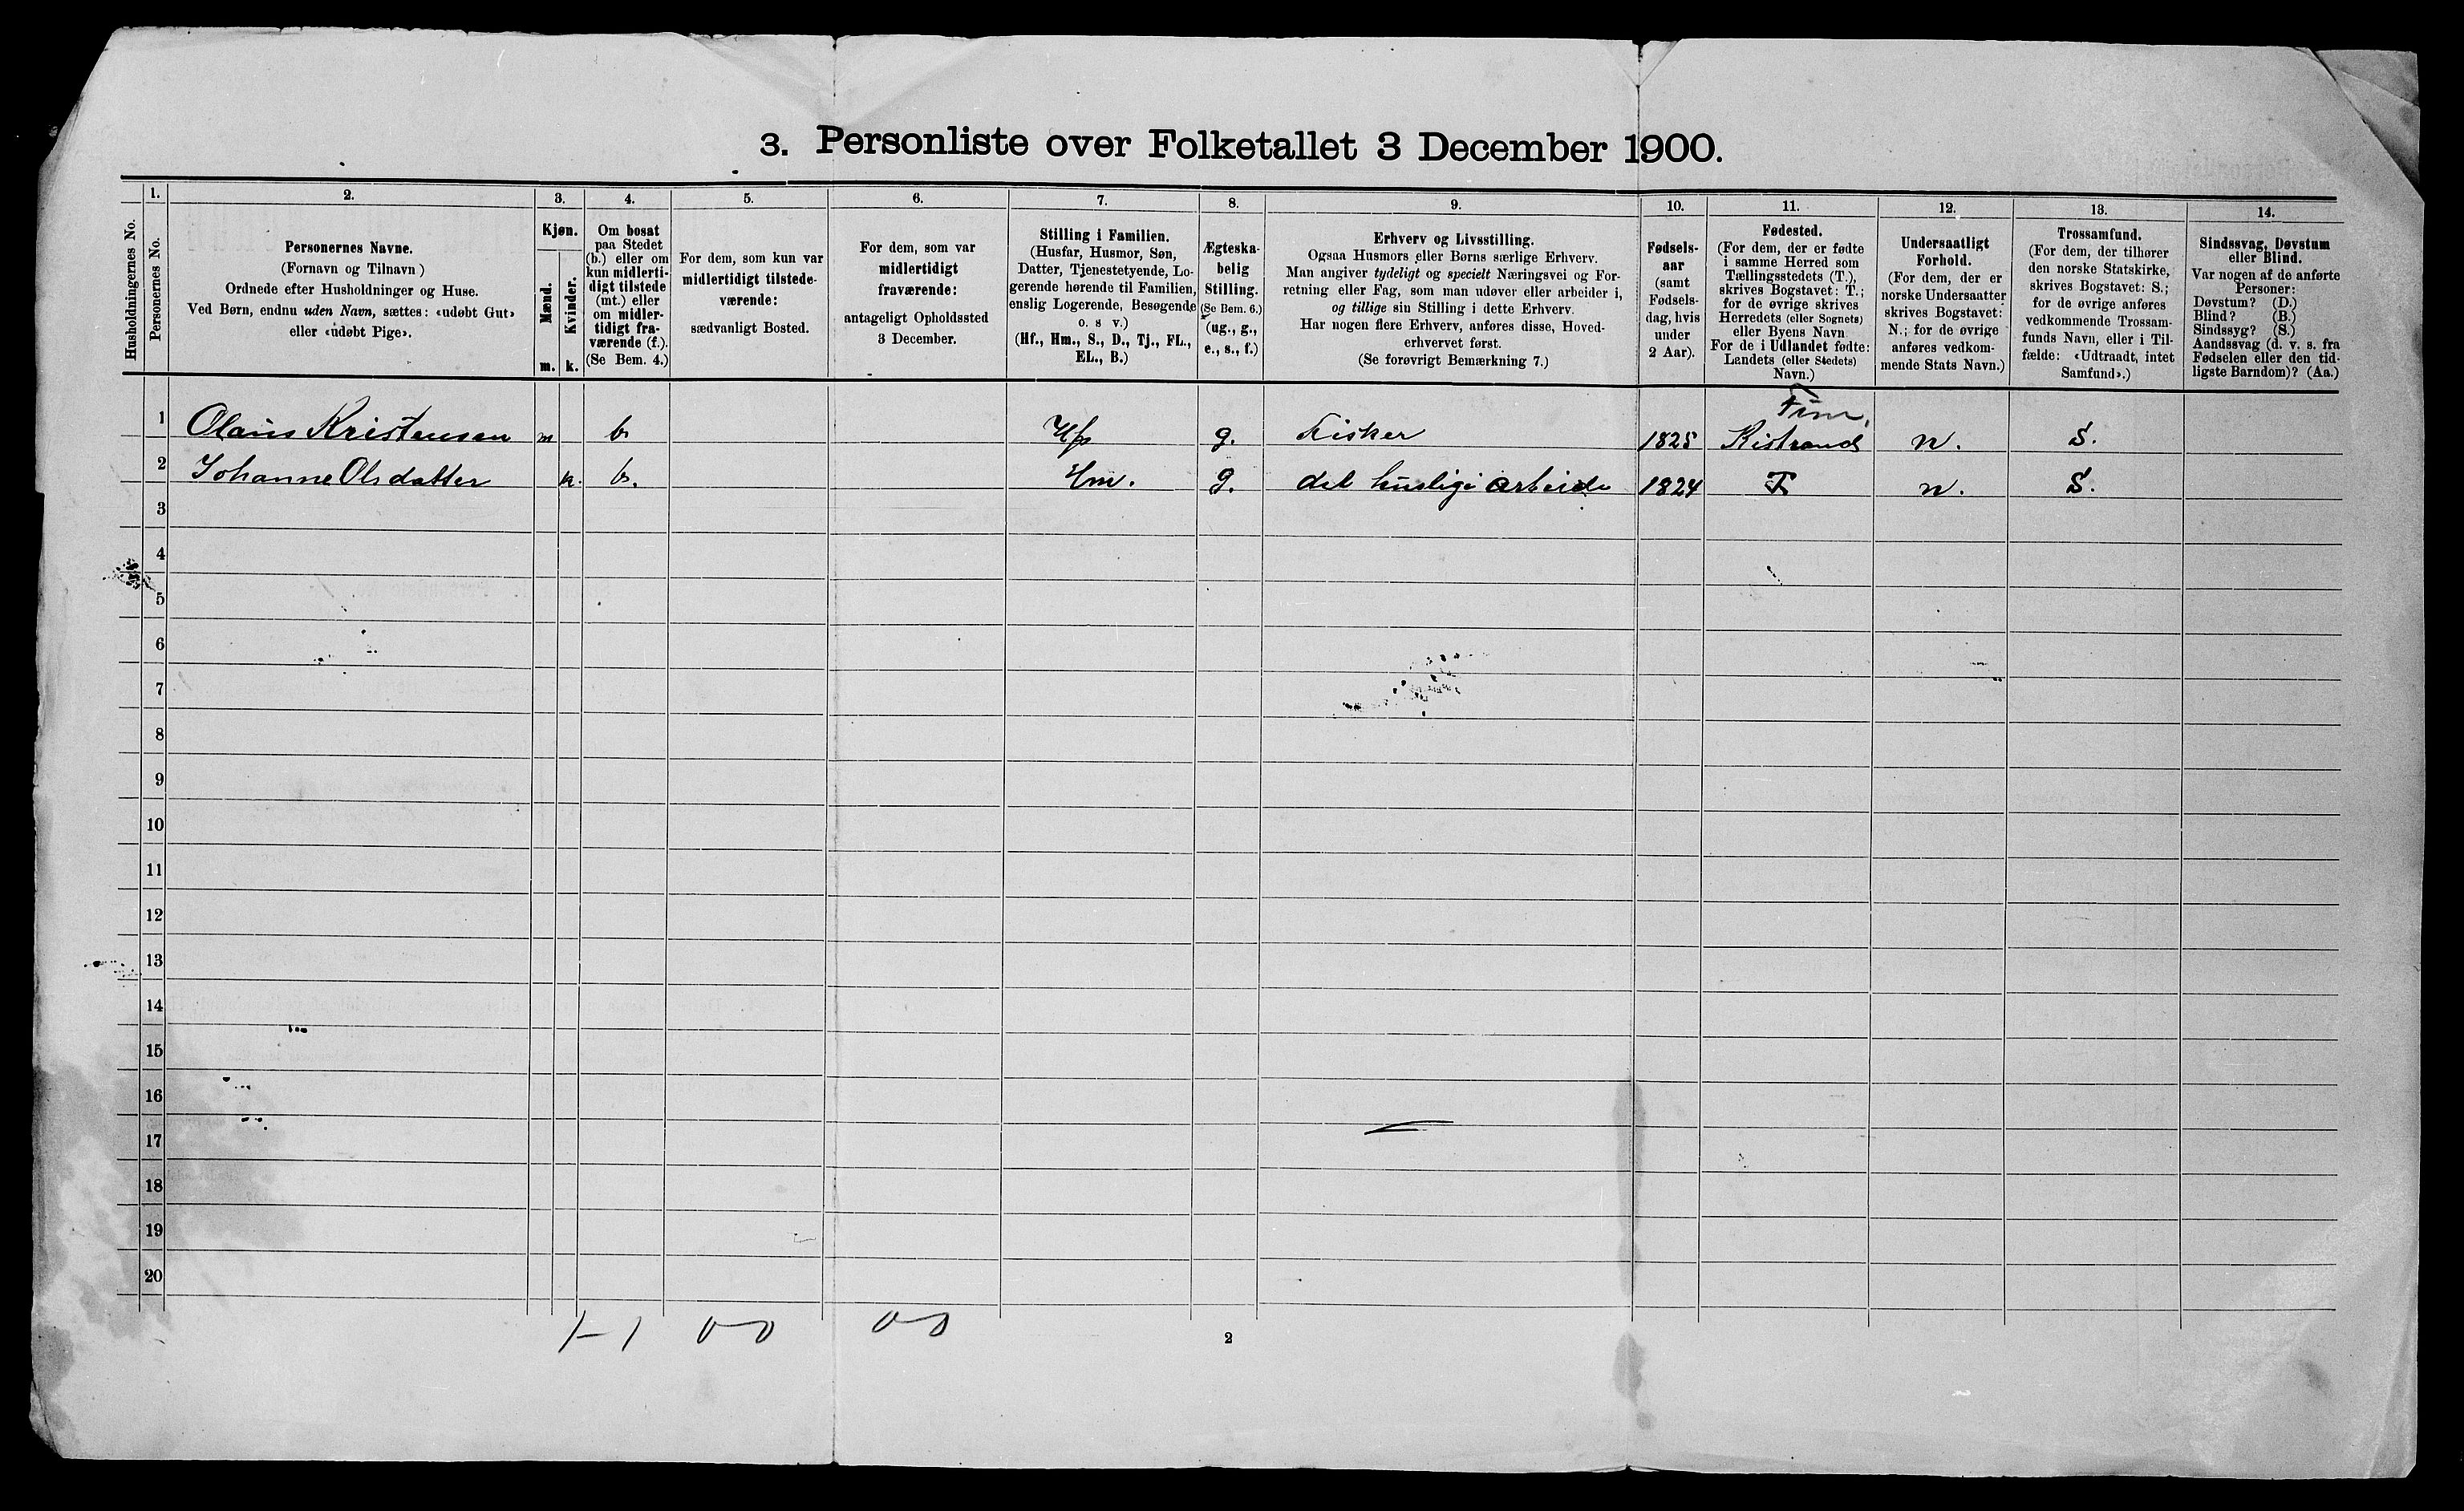 3. Personliste over Folketallet 3 December 1900.
Husholdningernes No.
1.
Personernes No.
2.
Personernes Navne.
(Fornavn og Tilnavn)
Ordnede efter Husholdninger og Huse.
Ved Børn, endnu uden Navn, sættes: «udøbt Gut»
eller «udøbt Pige».
3.
Kjøn.
Mænd.
Kvinder.
m.
k.
4.
Om bosat
paa Stedet
(b.) eller om
kun midlerti-
digt tilstede
(mt.) eller
om midler-
tidigt fra-
værende (f.).
(Se Bem. 4.)
5.
For dem, som kun var
midlertidigt tilstede-
værende:
sædvanligt Bosted.
6.
For dem, som var
midlertidigt
fraværende:
antageligt Opholdssted
3 December.
7.
Stilling i Familien.
(Husfar, Husmor, Søn,
Datter, Tjenestetyende, Lo-
gerende hørende til Familien,
enslig Logerende, Besøgende
o. s v.)
(Hf., Hm., S., D., Tj., FL.,
EL., B.)
8.
Ægteska-
belig
Stilling.
(Se Bem. 6.)
(ug., g.,
e., s., f.)
9.
Erhverv og Livsstilling.
Ogsaa Husmors eller Børns særlige Erhverv.
Man angiver tydeligt og specielt Næringsvei og For-
retning eller Fag, som man udøver eller arbeider i,
og tillige sin Stilling i dette Erhverv.
Har nogen flere Erhverv, anføres disse, Hoved-
erhvervet først.
(Se forøvrigt Bemærkning 7.)
10.
Fødsels-
aar
(samt
Fødsels-
dag, hvis
under
2 Aar).
11.
Fødested.
(For dem, der er fødte
i samme Herred som
Tællingsstedets (T.),
skrives Bogstavet: T.;
for de øvrige skrives
Herredets (eller Sognets)
eller Byens Navn
For de i Udlandet fødte:
Landets (eller Stedets)
Navn.)
12.
Undersaatligt
Forhold.
(For dem, der er
norske Undersaatter
skrives Bogstavet:
N.; for de øvrige
anføres vedkom-
mende Stats Navn.)
13.
Trossamfund.
(For dem, der tilhører
den norske Statskirke,
skrives Bogstavet: S.;
for de øvrige anføres
vedkommende Trossam-
funds Navn, eller i Til-
fælde: «Udtraadt, intet
Samfund».)
14.
Sindssvag, Døvstum
eller Blind.
Var nogen af de anførte
Personer:
Døvstum? (D.)
Blind? (B.)
Sindssyg? (S.)
Aandssvag (d. v. s. fra
Fødselen eller den tid-
ligste Barndom)? (Aa.)
Finm.
1 Olaus Kristensen m b Hf g. Fisker 1825 Kistrand n. S.
2 Johanne Olsdatter k. b. Hm. g. det huslige arbeide 1824 T n. S.
3
4
5
6
7
8
9
10
11
12
13
14
15
16
17
18
19
20
1-1 0-0 0-0
2